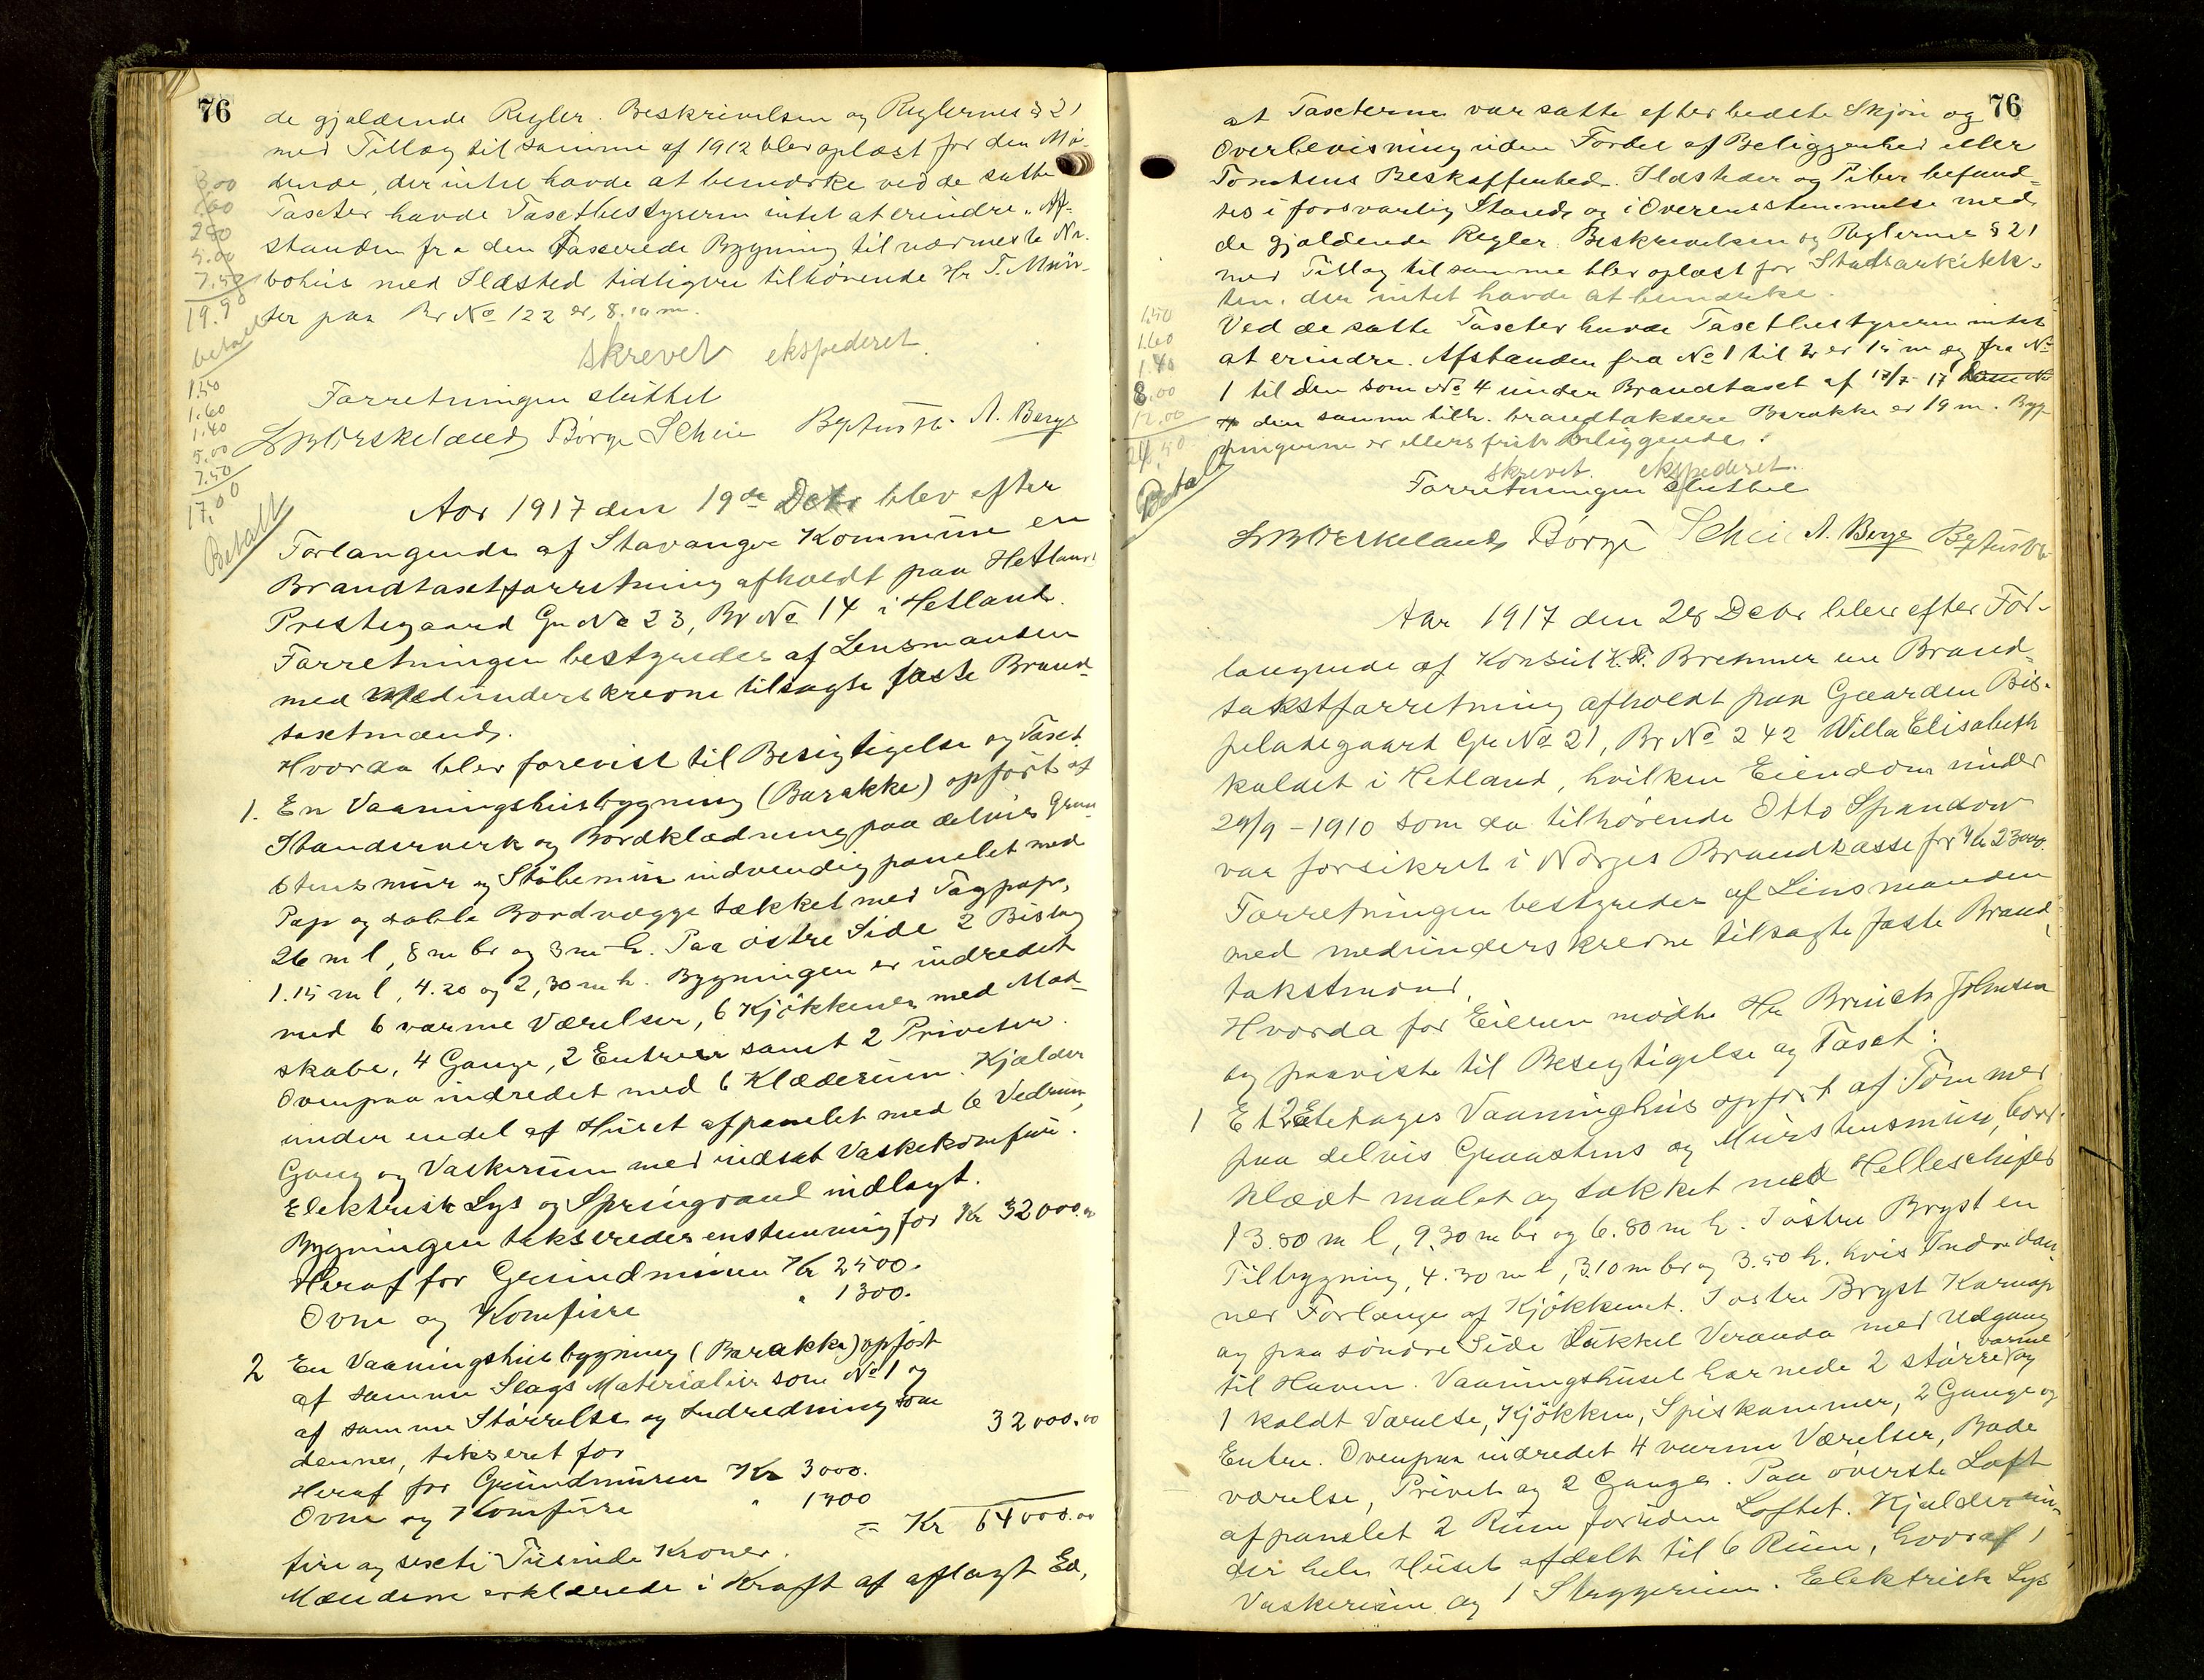 76
de gjældende Regler. Beskrivelsen og Reglernes § 21
med Tillæg til samme af 1912 blev oplæst for den Mö-
dende, der intet havde at bemærke ved de satte
Taxter havde Taxtbestyreren intet at erindre. Af-
standen fra den taxerede Bygning til nærmeste Na-
bohus med Ildsted tidligere tilhörende Hr T. Mün-
ter paa Br No 122 er, 8.10 m.
skrevet ekspederet.
Forretningen sluttet
L W Orskeland Börge Schei A. Berge
Aar 1917 den 19de Debr blev efter
Forlangende af Stavanger Kommune en
Brandtaxtforretning afholdt paa Hetland
Prestegaard Gr No 23, Br No 14 i Hetland.
Forretningen bestyredes af Lensmanden
med medunderskrevne tilsagte faste Brand-
taxtmænd.
Hvorda blev forevist til Besigtigelse og Taxt
1. En Vaaningshusbygning (Barakke) opfört af
Standerverk og Bordklædning paa delvis Graa-
stensmur og Stöbemur indvendig panelet med
Pap og doble Bordvægge tækket med Tagpap,
26 m l, 8 m br og 3 m h. Paa östre Side 2 Bislag
1.15 m l, 4.20 og 2,30 m h. Bygningen er indredet
med 6 varme Værelser, 6 Kjökkener med Mad-
skabe, 4 Gange, 2 Entreer samt 2 Priveter.
Ovenpaa indredet med 6 Klæderum. Kjælder
under endel af Huset afpanelet med 6 Vedrum,
Gang og Vaskerum med indsat Vaskekomfur.
Elektrisk Lys og Springvand indlagt.
Bygningen taksredes enstemmig for Kr 32000.00
Heraf for Grundmuren Kr 2500.
Ovne og Komfure " 1300.
2 En Vaaningshusbygning (Barakke) opfört
af samme Slags Materialier som No 1 og
af samme Störrelse og Indredning som
dennes, takseret for 32000.00
Heraf for Grundmuren Kr 3000.
Ovne og Komfure " 1300
= Kr 64000.00
fire og sexti Tusinde Kroner.
Mændene erklærede i Kraft af aflagt Ed,
5.00
7.50
19.90
betalt
1.50
1.60
1.40
5.00
7.50
17,00
Betalt
76
at Taxterne var satte efter bedste Skjön og
Overbevisning uden Fordel af Beliggenhed eller
Tomtens Beskaffenhed. Ildsteder og Piber befand-
tes i forsvarlig Stand og i Overensstemmelse med
de gjældende Regler. Beskrivelsen og Reglernes § 21
med Tillæg til samme blev oplæst for Stadsarkitek-
ten, der intet havde at bemærke.
Ved de satte Taxter havde Taxtbestyreren intet
at erindre. Afstanden fra No 1 til 2 er 15 m og fra No
1 til den som No 4 under Brandtaxt af 17/7 17
den samme tilh. brandtaksere Barakke er 19 m. Byg-
ningerne er ellers frit beliggende.
skrevet. ekspederet.
Forretningen sluttet
L W Orskeland Börge Schei A. Berge
1.50
1.60
1.40
8.00
12.00
24,50
Betalt
Aar 1917 den 28 Debr blev efter For-
langende af Konsul K. Brehmer en Brand-
takstforretning afholdt paa Gaarden Bis-
peladegaard Gr No 21, Br No 242 Villa Elisabeth
kaldet i Hetland, hvilken Eiendom under
29/9 - 1910 som da tilhörende Otto Spandow
var forsikret i Norges Brandkasse for Kr 23000.
Forretningen bestyredes af Linsmanden
med medunderskrevne tilsagte faste Brand-
takstmænd
Hvorda for Eieren mödte Hr Johnsen
og paaviste til Besigtigelse og Taxt:
1 Et 2 Etehages Vaaninghus opfört af Tömmer
paa delvis Graastens og Murstensmur, bord-
klædt malet og tækket med Helleschifer
13.80 m l, 9,30 m br og 6.80 m h. I östre Bryst en
Tilbygning, 4.30 m l, 3,10 m br og 3.50 h. hvis Indre dan-
ner Forlænge af Kjökkenet. I östre Bryst Karnap
og paa söndre Side lukket Veranda med Udgang
til Haven. Vaaningshuset har nede 2 större varme og
1 koldt Værelse, Kjökken, Spiskammer, 2 Gange og
Entre. Ovenpaa indredet 4 varme Værelser, Bade
værelse, Privet og 2 Gange. Paa överste Loft
afpanelet 2 Rum foruden Loftet. Kjælder un-
der hele Huset afdelt til 6 Rum, hvoraf 1
Vaskerum og 1 Stryggerum. Elektrisk Lys